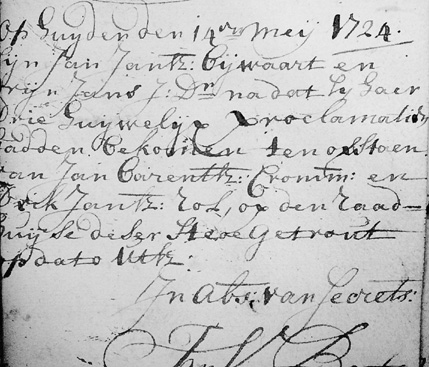 Op Huyden den 14en Meij 1724.
sijn Jan Jantz: Bijwaart en
Trijn Jans J: Dr. na dat sij haer
drie huijwelijx proclamatien
hadden bekomen ten overstaen
van Jan Barentz: Cromm: en
Dirk Jantz: Rol, op den raad=
huijse deser Stee getrout
op dato Utz:
In Abs: van Secrets: